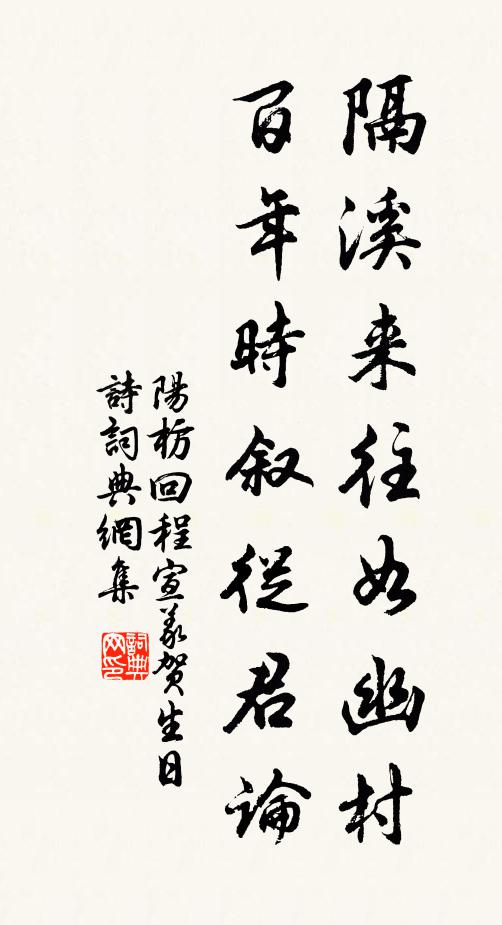 隔溪来往如幽村
百年時叙從君論
陽枋回程宣義賀生日
詩詞典網集
詞典网印